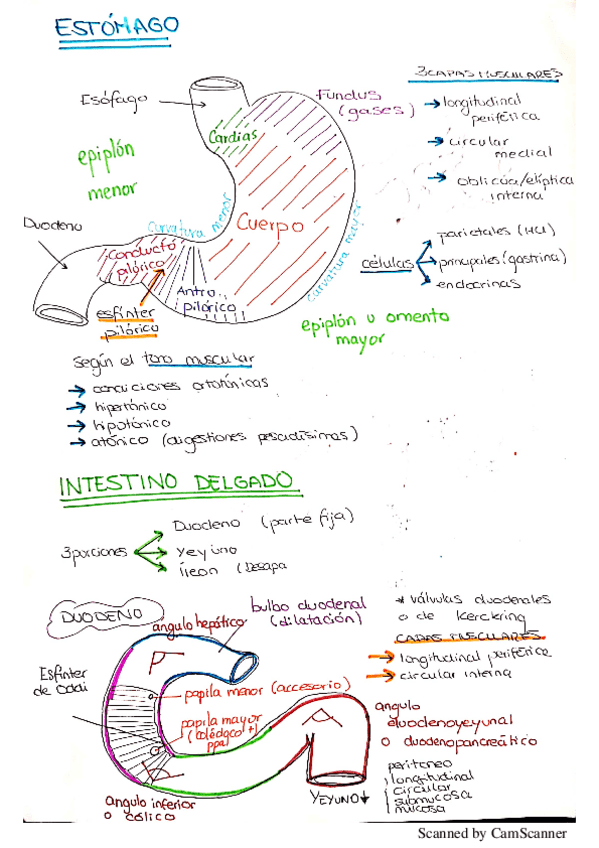 ESTÓMAGO
3 CAPAS MUSCULARES
Esófago
Fundus
(gases)
longitudinal
periférica
Cardias
circular
medial
epiplón
menor
oblicúa/elíptica
interna
Duodeno
curvatura menor
Cuerpo
curvatura mayor
parietales (HCl)
Conducto
pilórico
células
principales (gastrina)
endocrinas
Antro
pilórico
esfínter
pilórico
epiplón u omento
mayor
Según el tono muscular
condiciones ortotónicas
hipertónico
hipotónico
atónico (digestiones pesadísimas)
INTESTINO DELGADO
Duodeno (parte fija)
3 porciones
Yeyuno
Íleon (Desapa
DUODENO
ángulo hepático
bulbo duodenal
(dilatación)
* válvulas duodenales
o de Kerckring
CAPAS MUSCULARES
longitudinal periférica
circular interna
Esfínter
de Oddi
papila menor (accesorio)
papila mayor
(colédoco +
ppal)
angulo
duodenoyeyunal
o duodenopancreático
peritoneo
longitudinal
circular
submucosa
mucosa
YEYUNO
angulo inferior
o cólico
Scanned by CamScanner